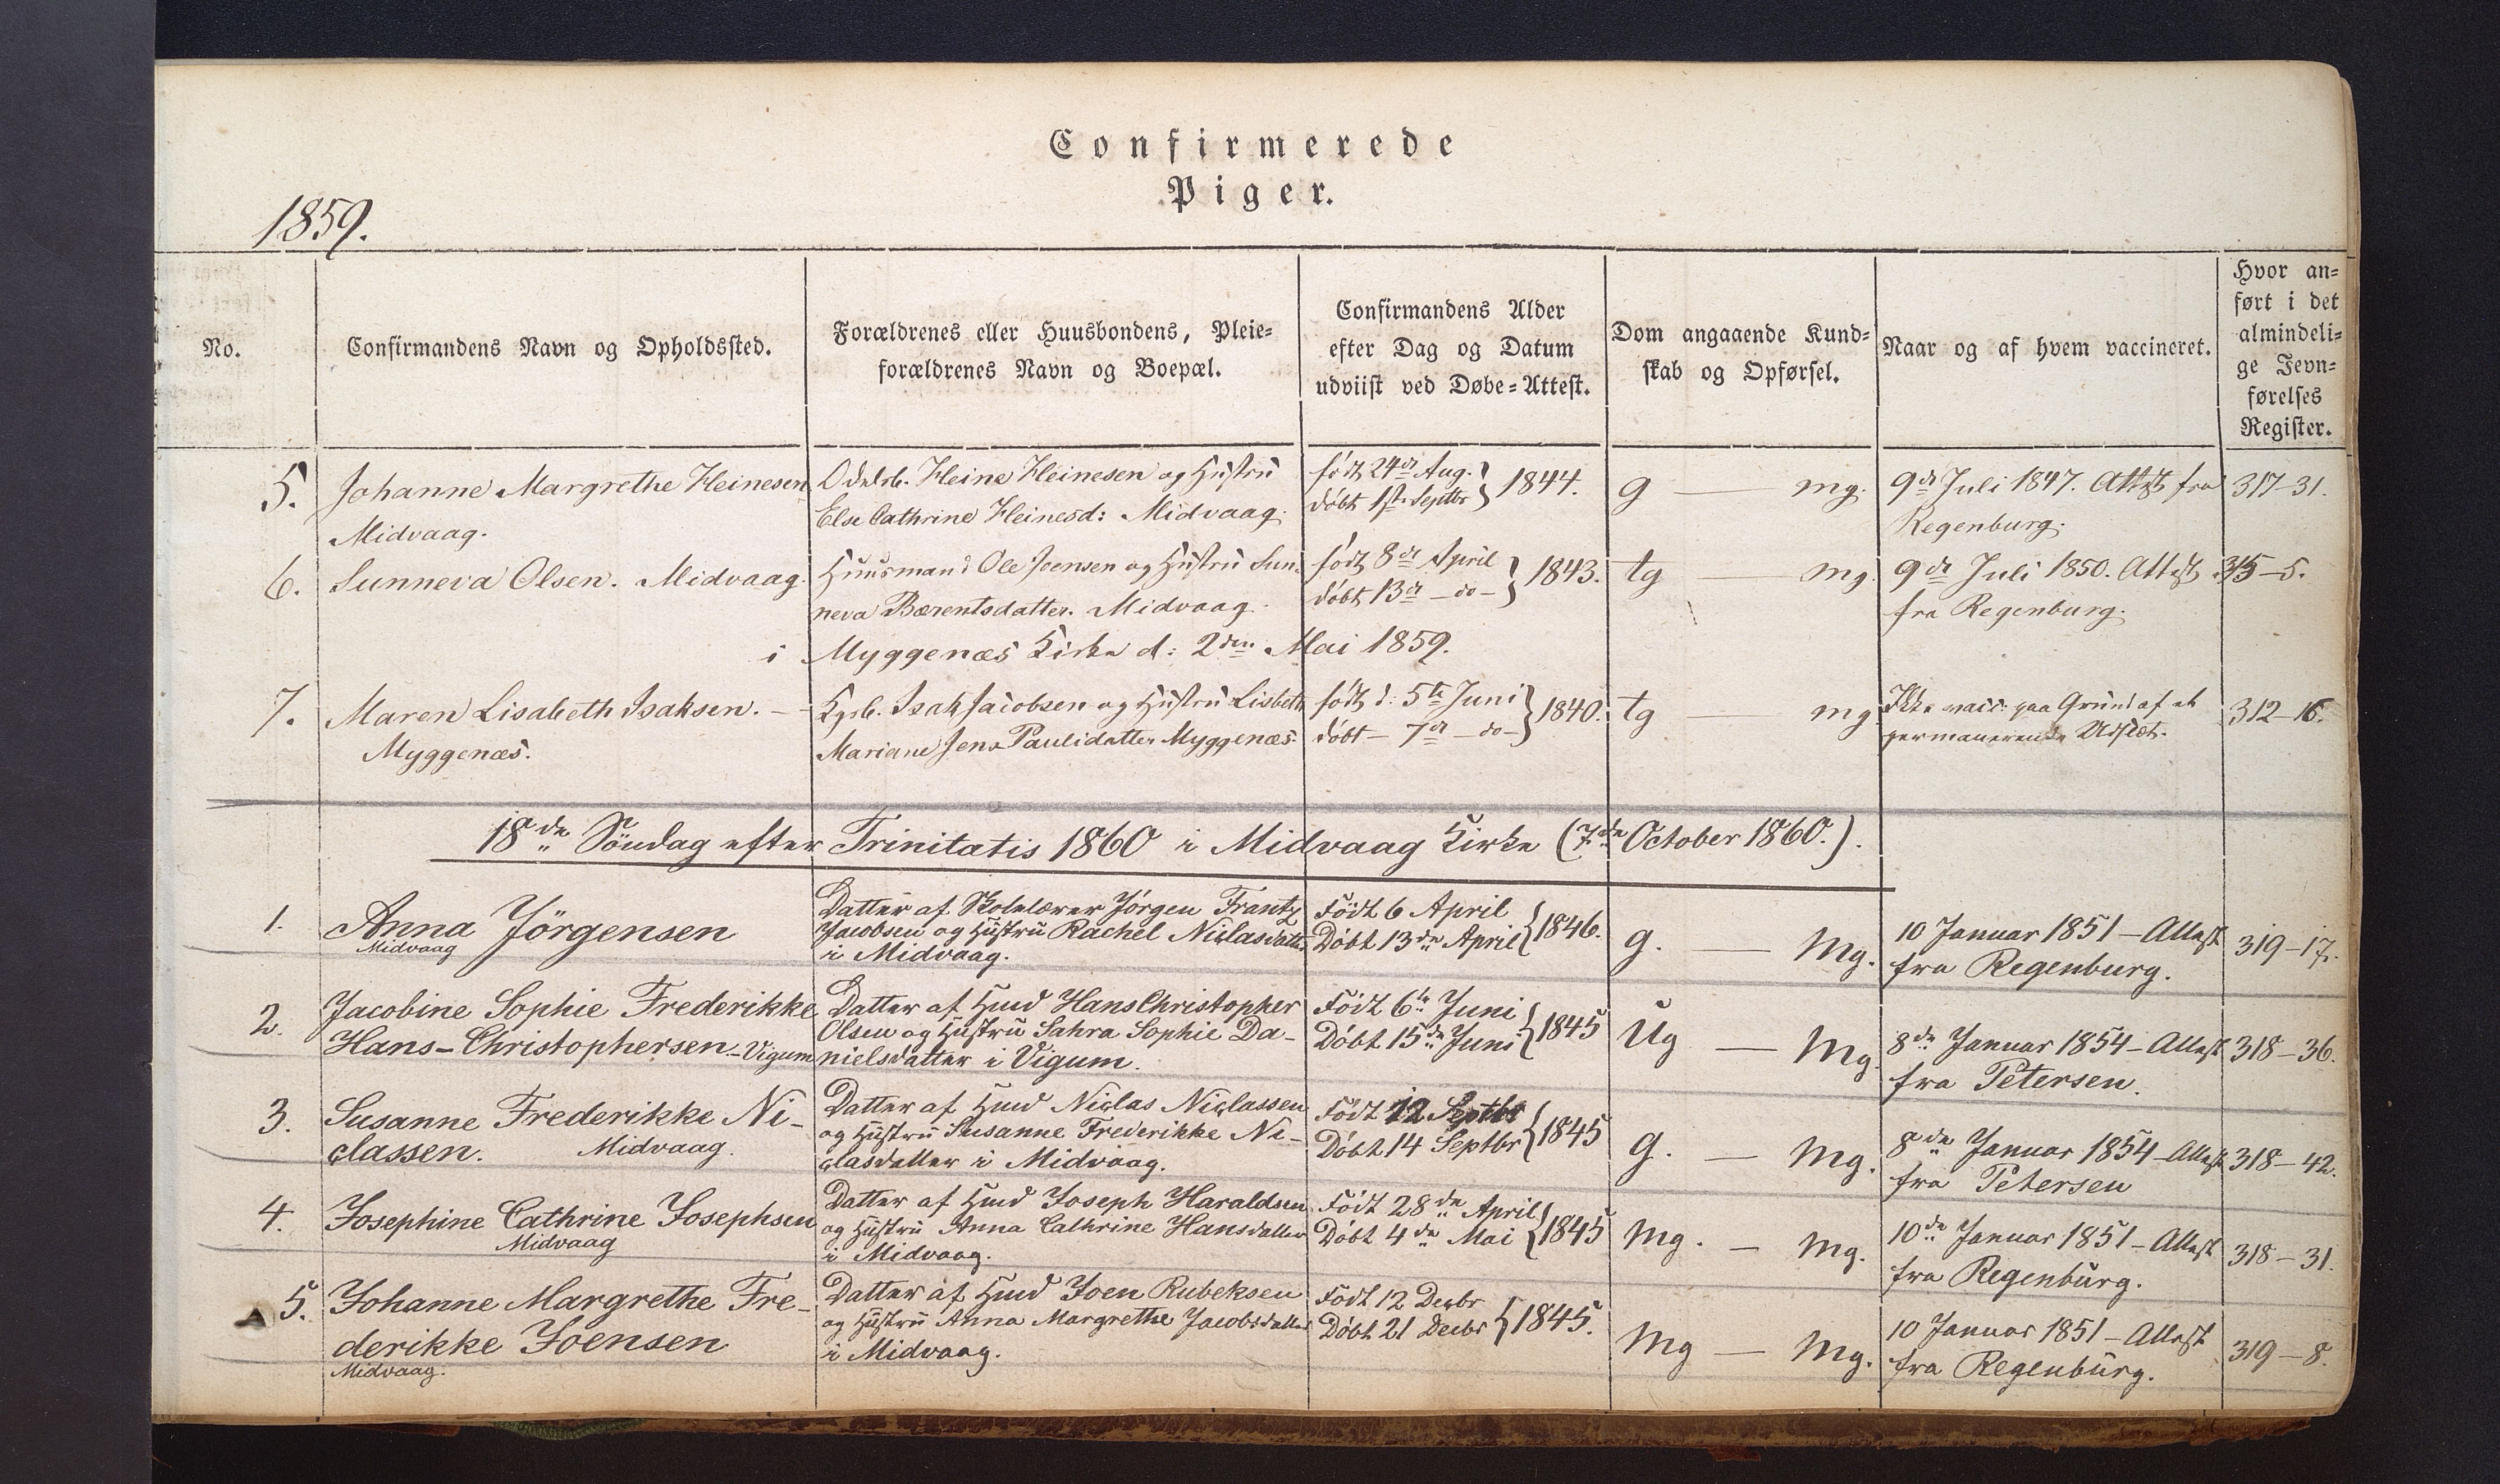 Confirmerede
Piger.
1859.
No.
Confirmandens Navn og Opholdssted.
Forældrenes eller Huusbondens, Pleie-
forældrenes Navn og Boepæl.
Confirmandens Alder
efter Dag og Datum
udviist ved Døbe-Attest.
Dom angaaende Kund-
skab og Opførsel.
Naar og af hvem vaccineret.
Hvor an-
ført i det
almindeli-
ge Jevn-
førelses
Register.
5.
Johanne Margrethe Heinesen
Midvaag.
Odelsb. Heine Heinesen og Hustru
Else Cathrine Heinesd: Midvaag.
født 24de Aug.
døbt 1ste Septbr } 1844.
g — mg.
9de Juli 1847. Attest fra
Regenburg.
317-31.
6.
Sunneva Olsen. Midvaag.
Huusmand Ole Joensen og Hustru Sun-
neva Bærentsdatter. Midvaag.
født 8de April
døbt 13de - do - } 1843.
tg — mg.
9de Juli 1850. Attest
fra Regenburg.
315-5.
i Myggenæs Kirke d: 2den Mai 1859.
7.
Maren Lisabeth Isaksen. -
Myggenæs.
Kgsb. Isak Jacobsen og Hustru Lisbeth
Mariane Jens Paulidatter Myggenæs.
født d. 5te Juni
døbt - 7de - do - } 1840.
tg — mg
Ikke vacc: paa Grund af et
permanerende Udslæt.
312-16.
18de Söndag efter Trinitatis 1860 i Midvaag Kirke (7de October 1860.).
1.
Anna Jörgensen
Midvaag
Datter af Skolelærer Jórgen Frantz
Jacobsen og Hustru Rachel Niclasdatter
i Midvaag.
Födt 6 April
Döbt 13de April } 1846.
g. — Mg.
10 Januar 1851 - Attest
fra Regenburg.
319-17.
2.
Jacobine Sophie Frederikke
Hans-Christophersen - Vigum
Datter af Hmd Hans Christopher
Olsen og Hustru Sahra Sophie Da-
nielsdatter i Vigum.
Födt 6te Juni
Döbt 15de Juni } 1845
Ug — Mg.
8de Januar 1854 - Attest
fra Petersen.
318-36.
3.
Susanne Frederikke Ni-
classen. Midvaag.
Datter af Hmd Niclas Niclassen
og Hustru Susanne Frederikke Ni-
clasdatter i Midvaag.
Födt 12 Septbr
Döbt 14 Septbr } 1845
g. — Mg.
8de Januar 1854 - Attest
fra Petersen
318-42.
4.
Josephine Cathrine Josephsen
Midvaag
Datter af Hmd Joseph Haraldsen
og Hustru Anna Cathrine Hansdatter
i Midvaag.
Födt 28de April
Döbt 4de Mai } 1845
Mg. - Mg.
10de Januar 1851 - Attest
fra Regenburg.
318-31.
5.
Johanne Margrethe Fre-
derikke Joensen
Midvaag.
Datter af Hmd Joen Rubeksen
og Hustru Anna Margrethe Jacobsdatter
i Midvaag.
Födt 12 Decbr
Döbt 21 Decbr } 1845.
Mg — Mg.
10 Januar 1851 - Attest
fra Regenburg.
319-8.